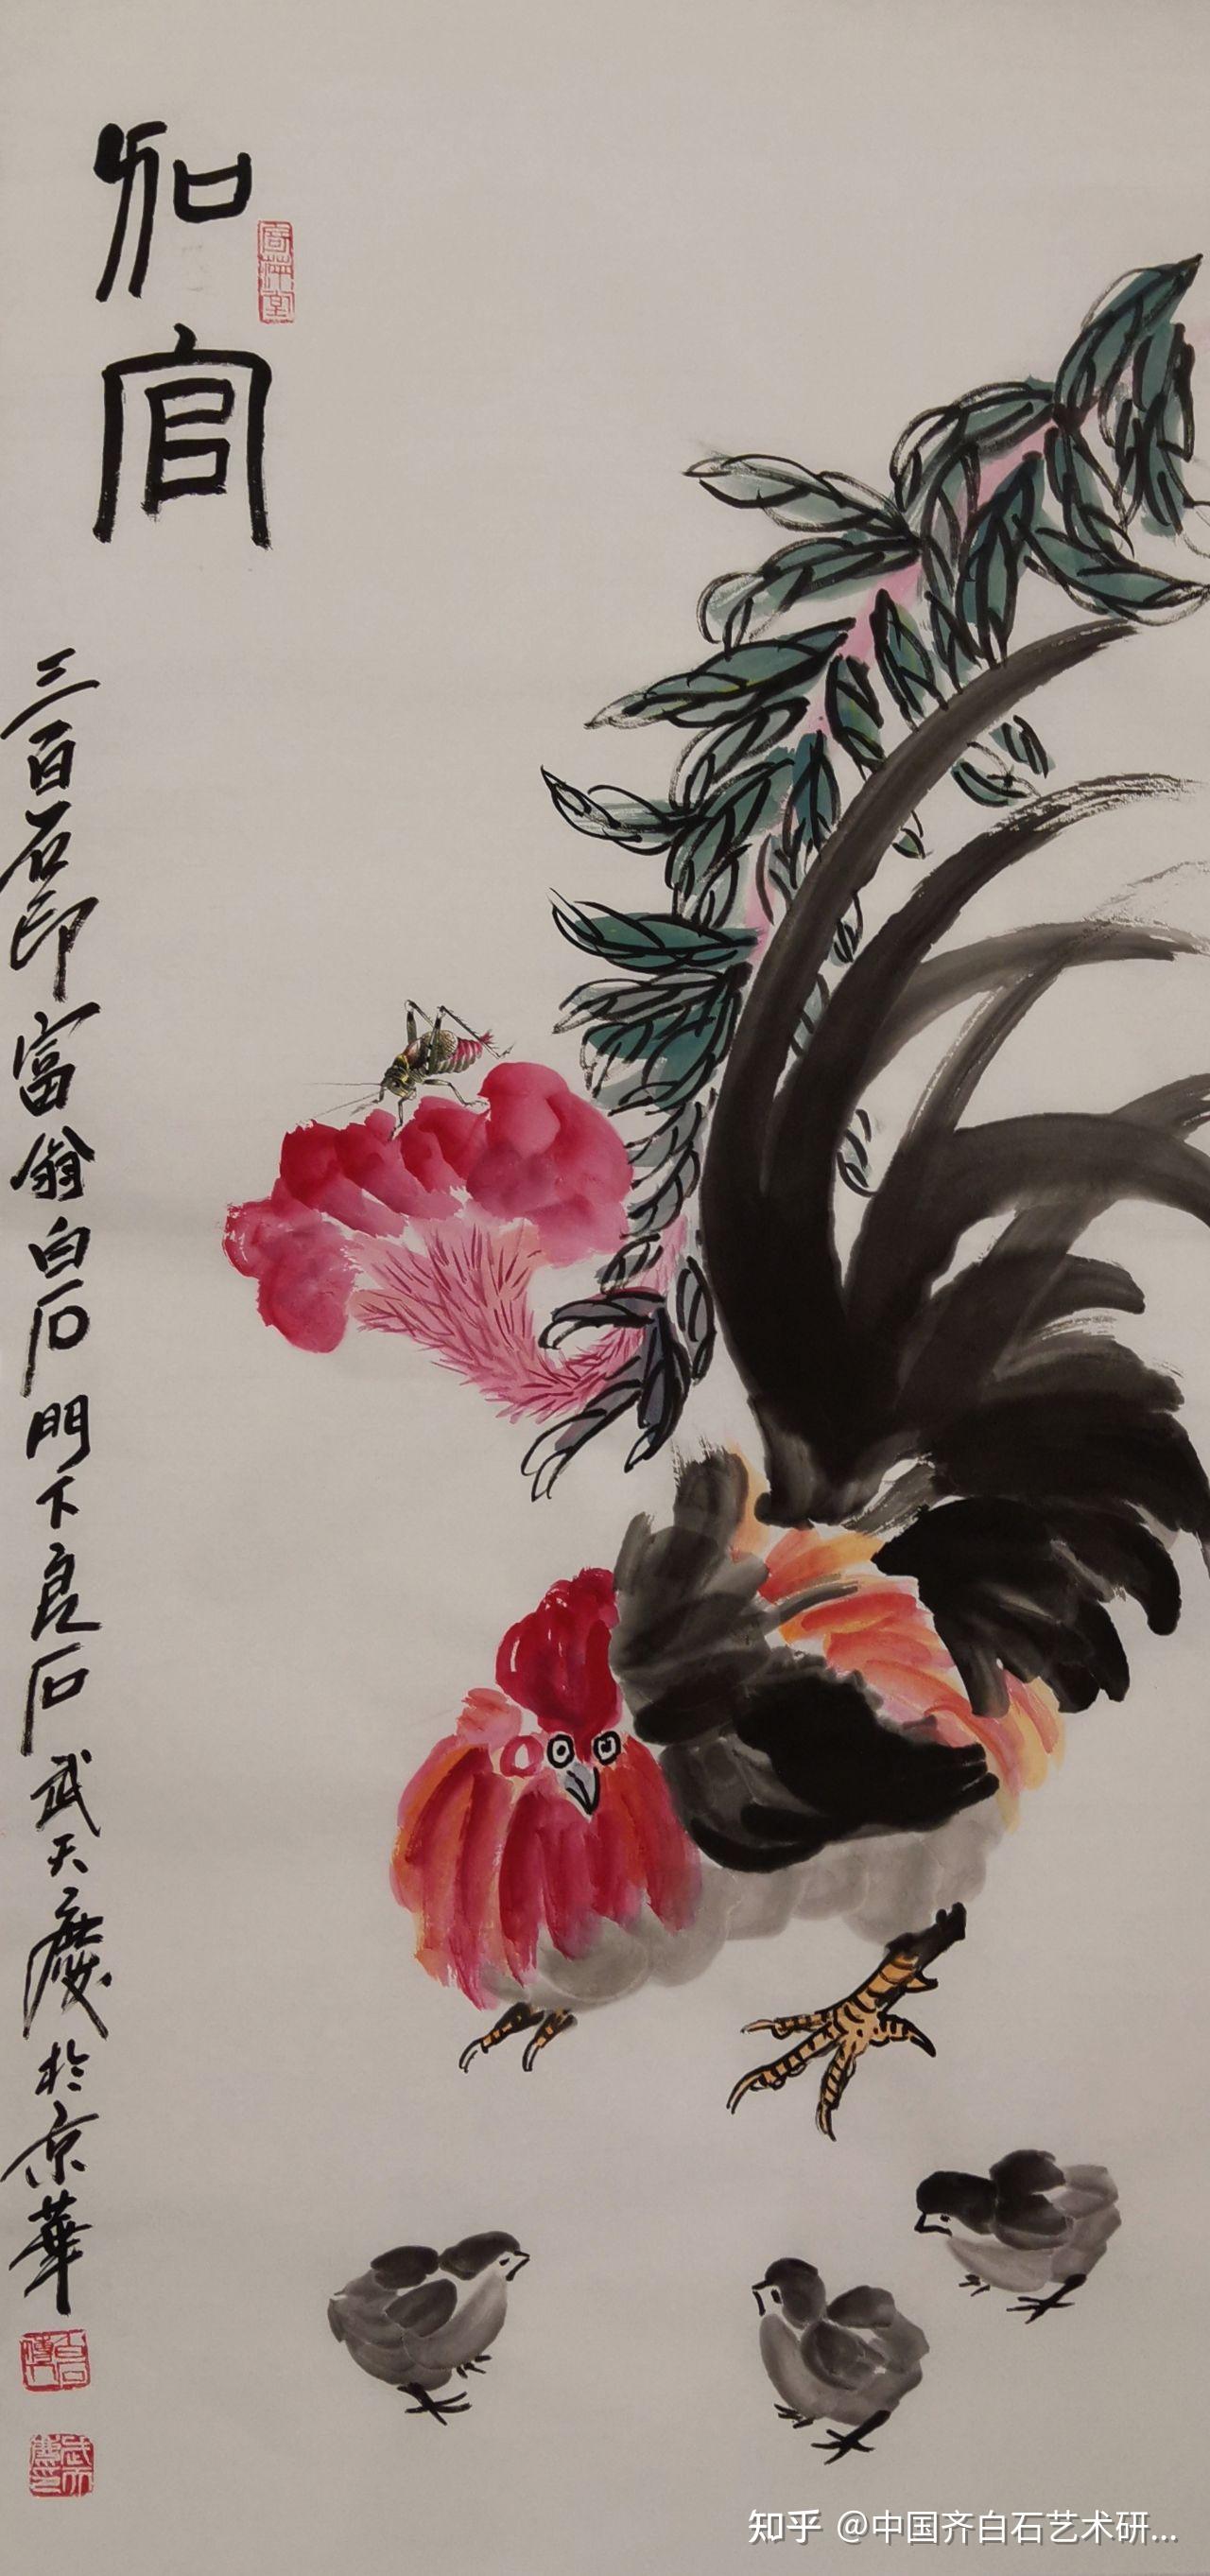 加官
三百石印富翁白石門下良石武天慶於京華
知乎 @中国齐白石艺术研...